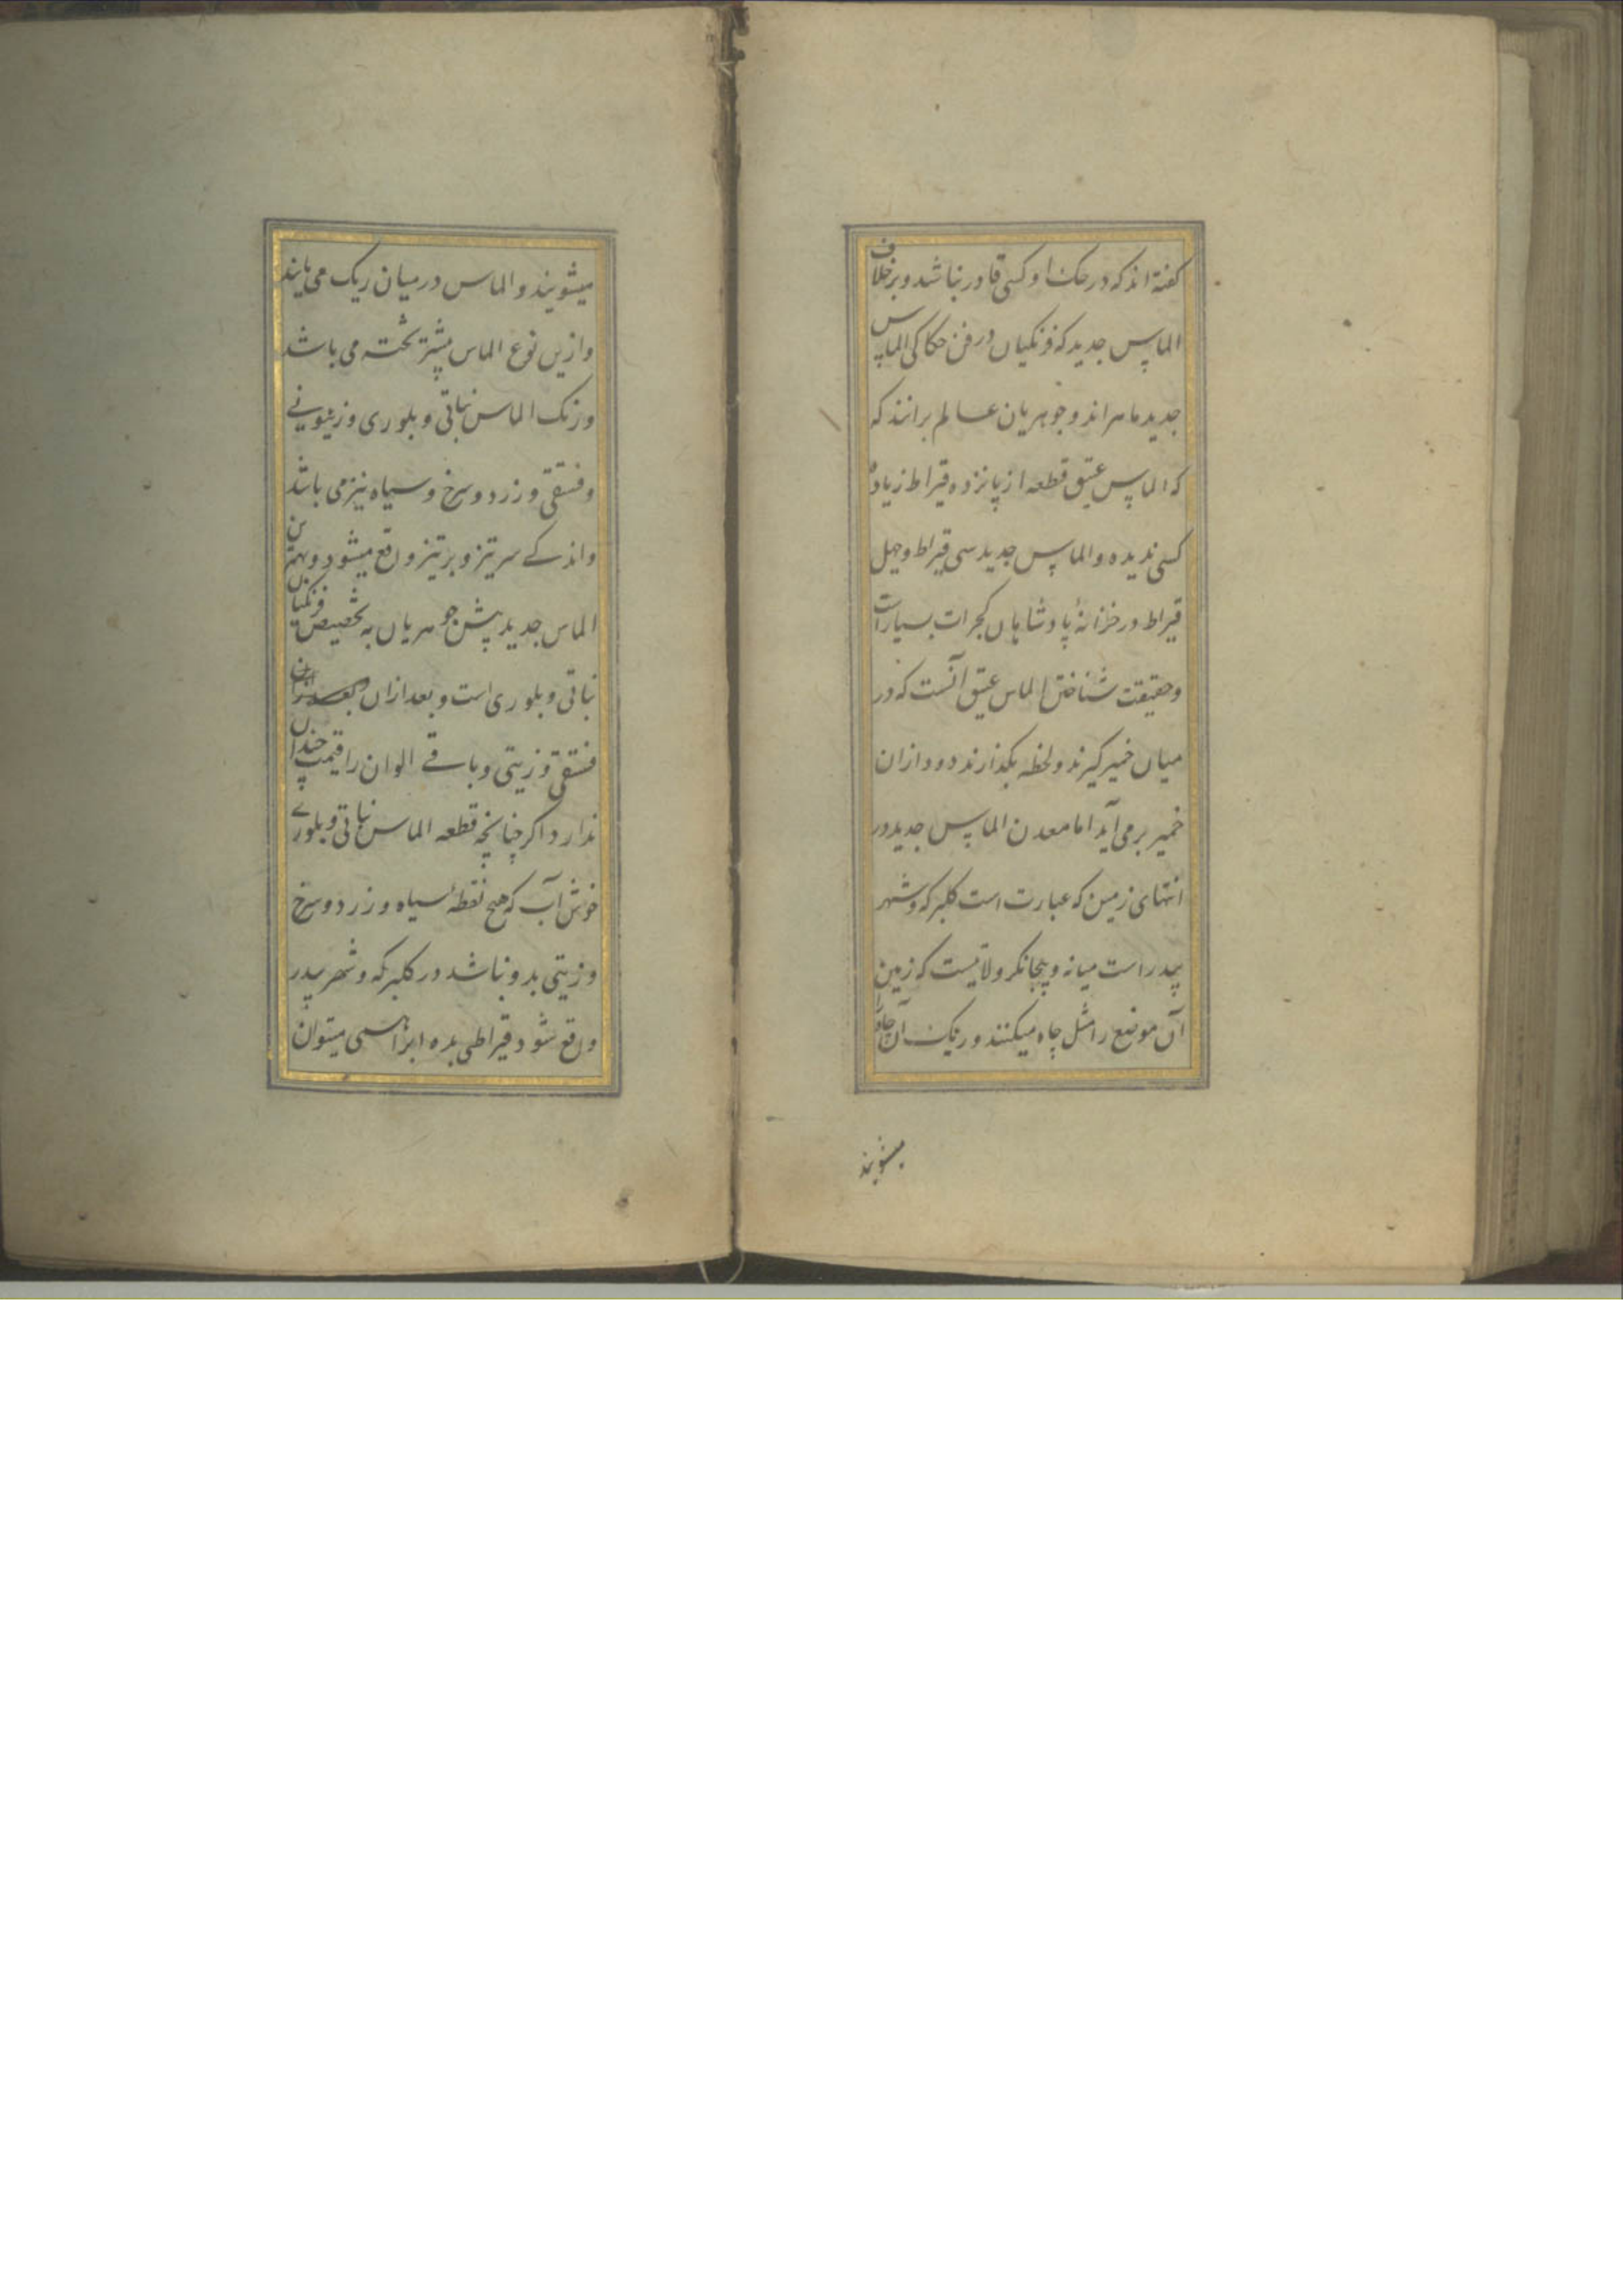 کفته اند که در حکت او کسی قادر نباشد و برخلاف
الماس جدید که فرنکیان در فن حکاکی الماس
جدید ماهر اند و جوهریان عالم برانند که
که الماس عتیق قطعه از پانزده قیراط زیاده
کسی ندیده و الماس جدید سی قیراط و چهل
قیراط در خزانهٔ پادشاهان کجرات بسیار است
و حقیقت شناختن الماس عتیق آنست که در
میان خمیر کیرند و لحظه بکذارند دود ازان
خمیر بر می آید اما معدن الماس جدید در
انتهای زمین که عبارت است کلبرکه و شهر
بیدر است میانه و بیجانکر ولایتست که زمین
آن موضع را مثل چاه میکنند و ریک آن چاه را
میشویند
میشویند و الماس در میان ریک می یابند
و ازین نوع الماس بیشتر تخته می باشد
و رنک الماس نباتی و بلوری و زیتونے
و فستقی و زرد و سرخ و سیاه نیز می باشد
و اندکے سر تیز و بر تیز واقع میشود و بهترین
الماس جدید پیش جوهریان به تخصیص فرنکیان
نباتی و بلوری است و بعد ازان
فستقی و زیتی و باقے الوان را قیمت چندان
ندارد اکر چنانچه قطعه الماس نباتی و بلورے
خوش آب که هیچ نقطهٔ سیاه و زرد و سرخ
و زیتی بدو نباشد در کلبرکه و شهر بیدر
واقع شود قیراطی بده ابراهیمی میتوان